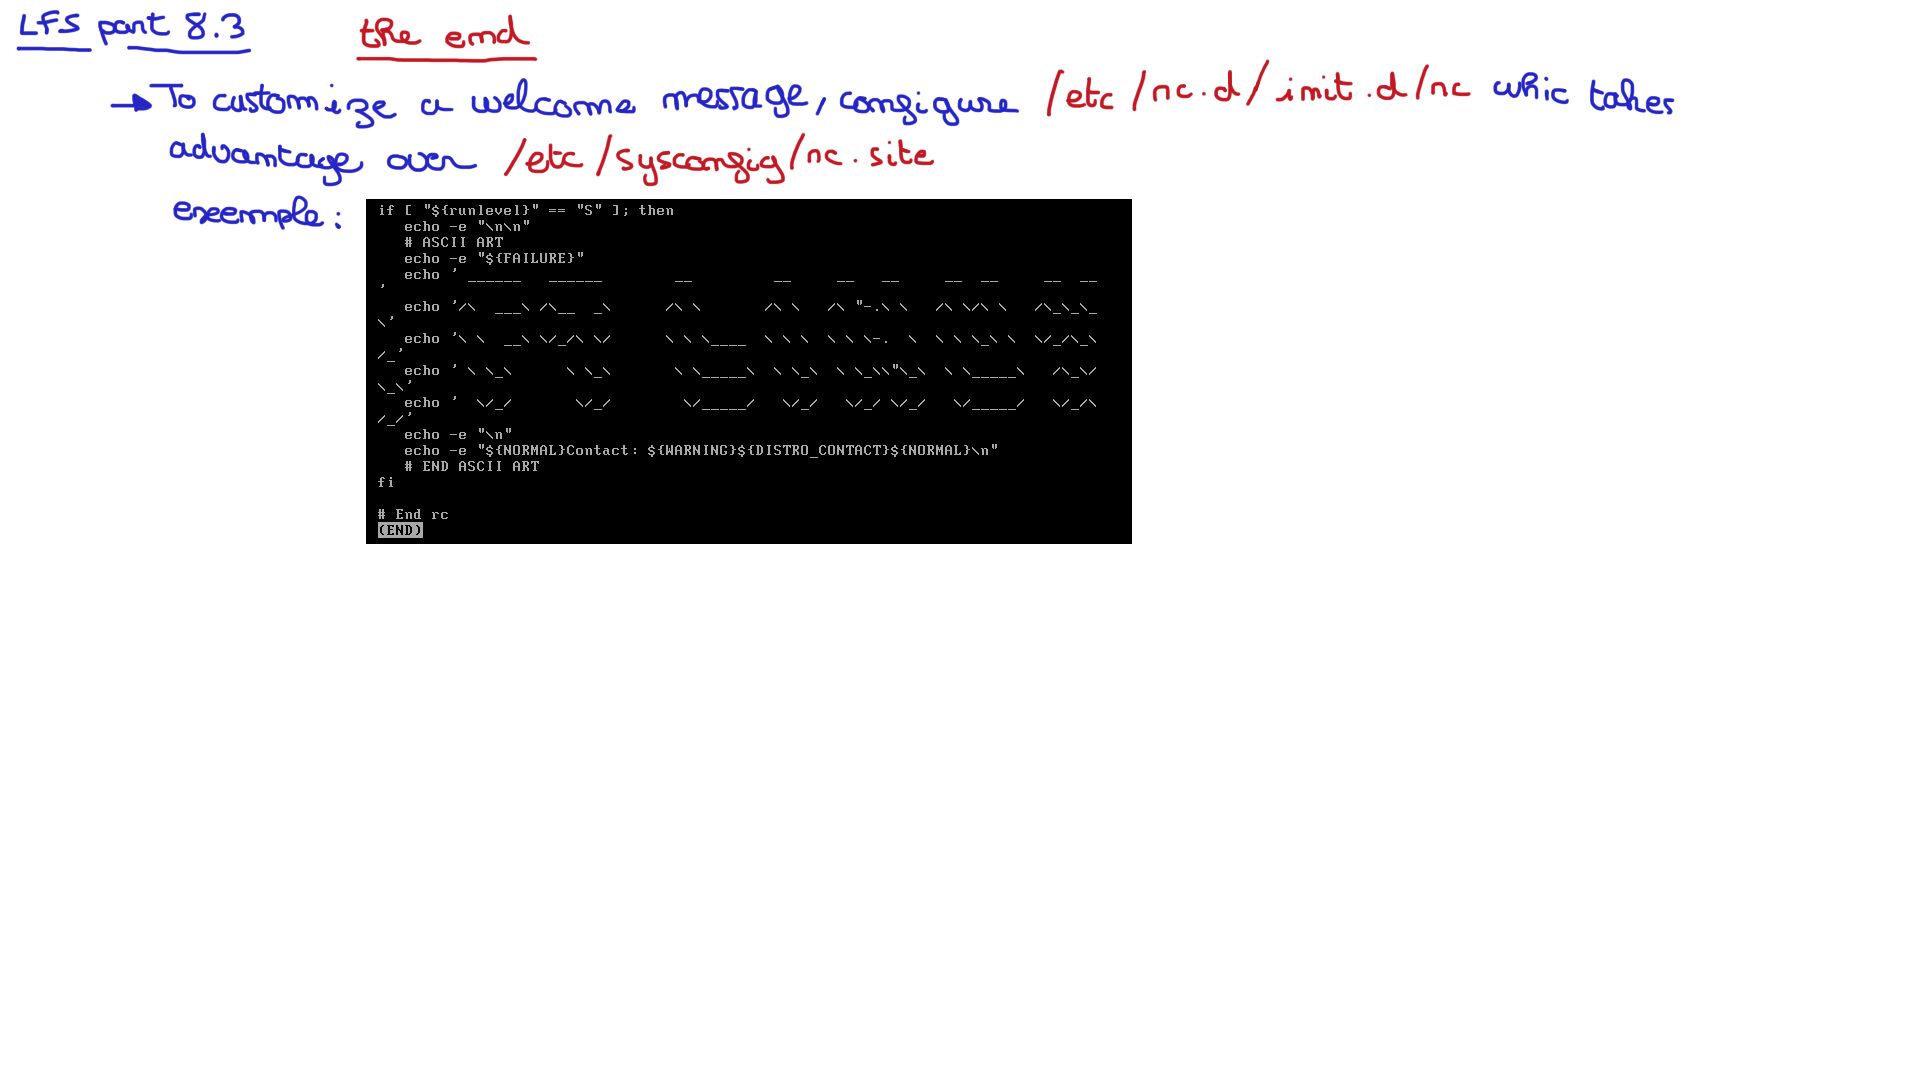 LFS part 8.3 the end
→ To customize a welcome message, configure /etc/rc.d/init.d/rc whic takes
advantage over /etc/sysconfig/rc.site
exemple:
if [ "${runlevel}" == "S" ]; then
   echo -e "\n\n"
   # ASCII ART
   echo -e "${FAILURE}"
   echo ' ______   ______        __          __     __   __     __  __     __  __
'
   echo '/\  ___\ /\__  _\      /\ \       /\ \   /\ "-.\ \   /\ \/\ \   /\_\_\_
\'
   echo '\ \  __\ \/_/\ \/      \ \ \____  \ \ \  \ \ \-.  \  \ \ \_\ \  \/_/\_\
/_'
   echo ' \ \_\      \ \_\       \ \_____\  \ \_\  \ \_\\"\_\  \ \_____\   /\_\/
\_\'
   echo '  \/_/       \/_/        \/_____/   \/_/   \/_/ \/_/   \/_____/   \/_/\
/_/'
   echo -e "\n"
   echo -e "${NORMAL}Contact: ${WARNING}${DISTRO_CONTACT}${NORMAL}\n"
   # END ASCII ART
fi

# End rc
(END)